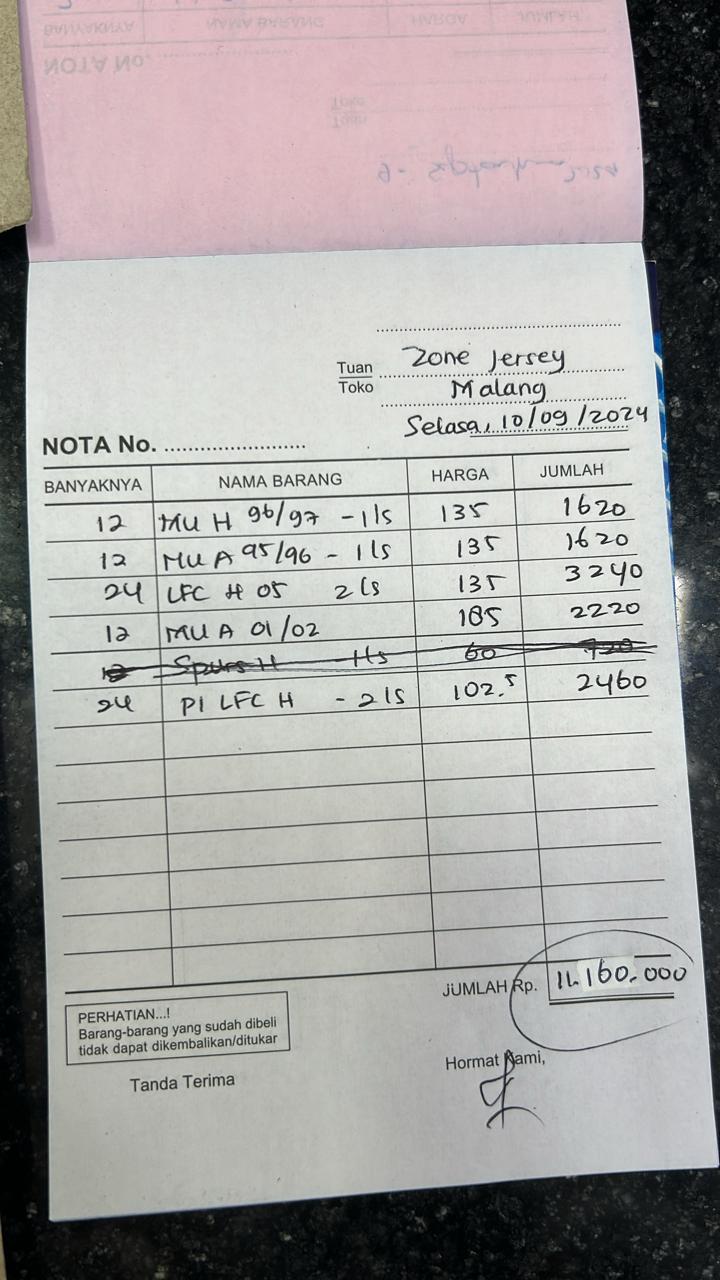 BANYAKNYA NAMA BARANG HARGA JUMLAH
NOTA No.
Toko
Tuan
Tuan Zone Jersey
Toko Malang
Selasa, 10/09/2024
NOTA No.
BANYAKNYA NAMA BARANG HARGA JUMLAH
12 MU H 96/97 - 1 ls 135 1620
12 MU A 95/96 - 1 ls 135 1620
24 LFC H 05 2 ls 135 3240
12 MU A 01/02 185 2220
12 Spurs H 60 720
24 PI LFC H - 2 ls 102.5 2460
JUMLAH Rp. 11.160.000
PERHATIAN...!
Barang-barang yang sudah dibeli
tidak dapat dikembalikan/ditukar
Hormat Kami,
Tanda Terima